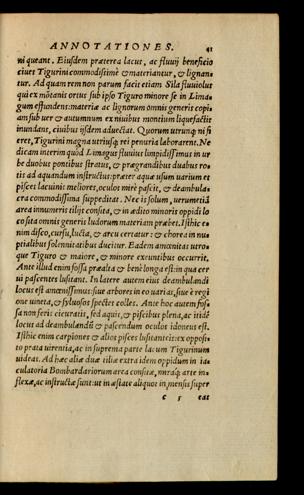 ANNOTATIONES. 41
ni queant. Eiusdem præterea lacus, ac fluuij beneficio
ciues Tigurini commodissimè & materiantur, & lignan-
tur. Ad quam rem non parum facit etiam Sila fluuiolus
qui ex mōtanis ortus sub ipso Tiguro minore se in Lima-
gum effundens: materiæ ac lignorum omnis generis copi-
am sub uer & autumnum ex niuibus montium liquefactis
inundans, ciuibus ijsdem aduectat. Quorum utrunq; ni fi
eret, Tigurini magna utriusq; rei penuria laborarent. Ne
dicam interim quòd Limagus fluuius limpidissimus in ur
be duobus pontibus stratus, & prægrandibus duabus ro-
tis ad aquandum instructus: præter aquæ usum uarium et
pisces lacuinis meliores, oculos mirè pascit, & deambula-
cra commodissima suppeditat. Nec is solum, uerumetiā
area innumeris tilijs consita, & in ædito minoris oppidi lo
co sita omnis generis ludorum materiam præbet. Isthic e-
nim disco, cursu, lucta, & arcu certatur: & chorea in nu-
ptialibus solennitatibus ducitur. Eadem amœnitas utro-
que Tiguro & maiore, & minore exeuntibus occurrit.
Ante illud enim fossa præalta & benè longa est: in qua cer
ui pascentes lusitant. In latere autem eius deambulandi
locus est amœnissimus: siue arbores in eo uarias, siue è regi
one uineta, & syluosos spectes colles. Ante hoc autem fos-
sa non feris cicuratis, sed aquis, & piscibus plena, ac itidē
locus ad deambulandū & pascendum oculos idoneus est.
Isthic enim carpiones & alios pisces lusitanteis: ex opposi-
to prata uirentia, ac in suprema parte lacum Tigurinum
uideas. Ad hæc aliæ duæ tiliæ extra idem oppidum in ia-
culatoria Bombardariorum area consitæ, miraq; arte in-
flexæ, ac instructæ sunt: ut in æstate aliquot in mensis super
c 5 eas